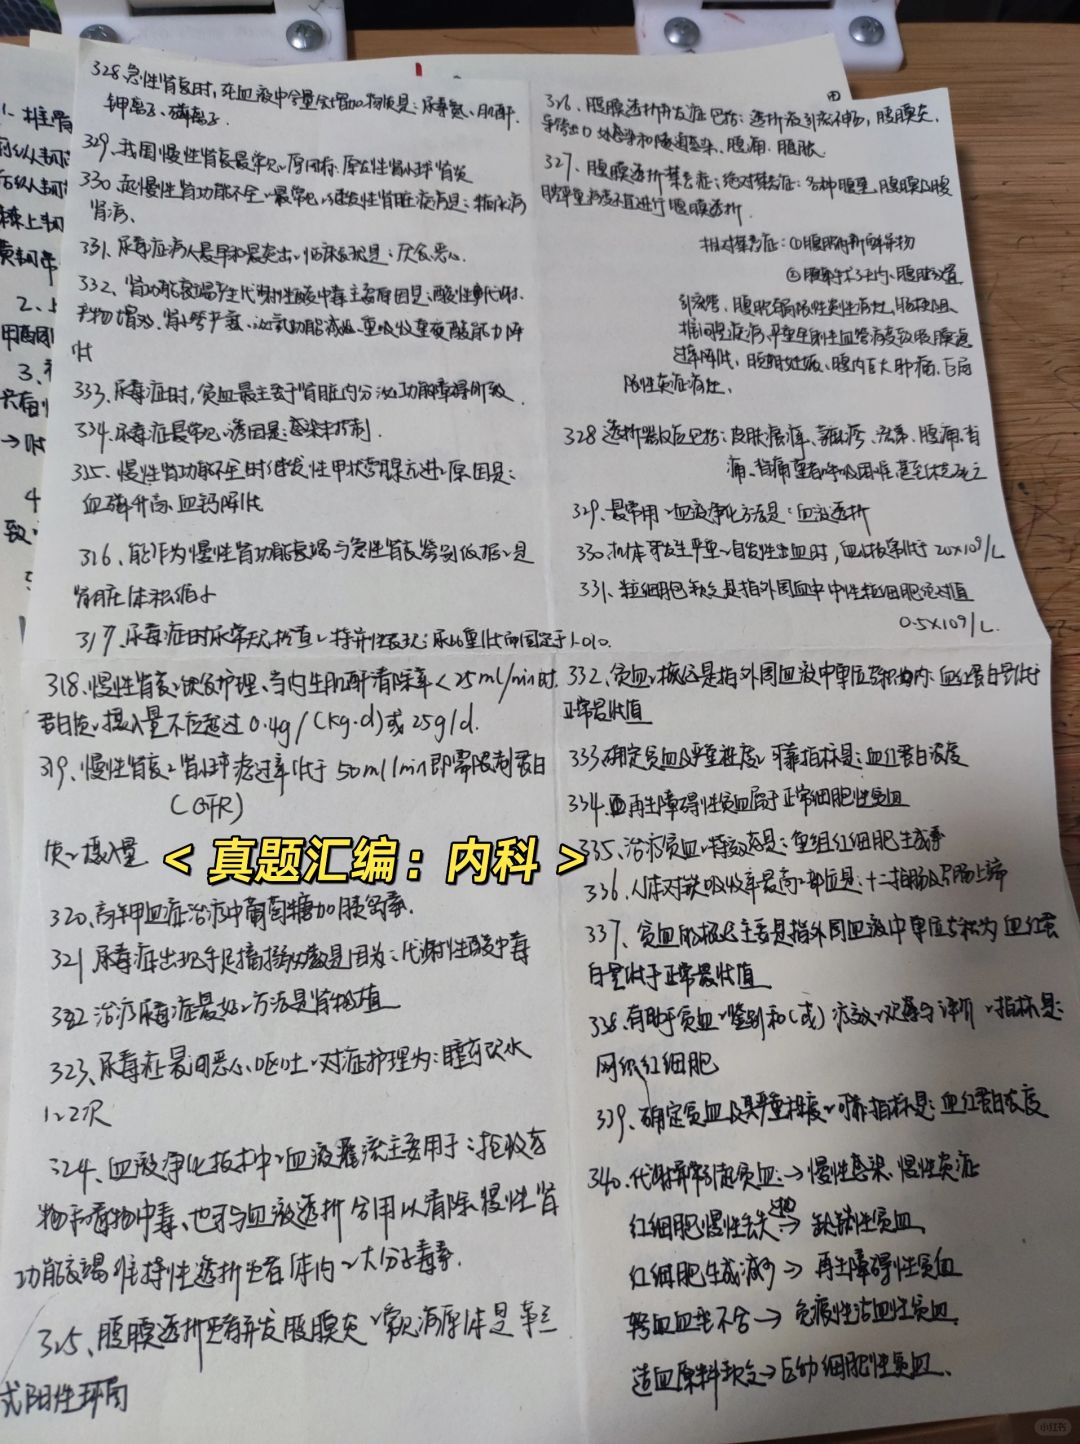 328.急性肾衰时,在血液中含量会增加物质是:尿毒氮、肌酐.
钾离子、磷离子.
329.我国慢性肾衰最常见、原因有:原发性肾小球肾炎
330.起慢性肾功能不全、最常见、继发性肾脏疾病是:糖尿病
肾病、
331、尿毒症病人最早和最突出、临床表现是:厌食、恶心.
332、肾功能衰竭产生代谢性酸中毒主要原因是:酸性代谢
产物增多、肾小管、泌氨功能减退、重吸收重碳酸能力降
低
333、尿毒症时,贫血最主要于肾脏内分泌功能障碍所致
334、尿毒症最常见、诱因是:感染未控制.
315、慢性肾功能不全时继发性甲状旁腺亢进、原因是:
血磷升高、血钙降低
316、能作为慢性肾功能衰竭与急性肾衰鉴别依据、是
肾脏体积缩小
317、尿毒症时尿常规检查、特异性表现:尿比重低而固定于1.010.
318、慢性肾衰、饮食护理、当内生肌酐清除率<25ml/min时.
蛋白质、摄入量不应超过0.4g/(kg·d)或25g/d.
319、慢性肾衰、肾小球滤过率低于50ml/min即需限制蛋白
(GFR)
质、摄入量
320、高钾血症治疗中葡萄糖加胰岛素.
321尿毒症出现手足搐搦是因为:代谢性酸中毒
322治疗尿毒症最好、方法是肾移植
323、尿毒症晨间恶心、呕吐、对症护理为:睡前饮水
1~2次
324、血液净化技术中、血液灌流主要用于:抢救药
物和毒物中毒、也可与血液透析合用以清除慢性肾
功能衰竭维持性透析患者体内、大分子毒素.
325、腹膜透析患者并发腹膜炎、常见病原体是革兰
式阳性球菌
<真题汇编:内科>
326、腹膜透析并发症包括:透析液引流不畅,腹膜炎、
导管出口处感染和隧道感染、腹痛、腹胀.
327、腹膜透析禁忌症:绝对禁忌症:各种腹壁、腹膜及腹
腔严重不宜进行腹膜透析.
相对禁忌症:①腹腔内有新鲜异物
②腹部手术3天内、腹腔放置
引流管、腹腔有局限性炎性病灶、肠梗阻、
椎间盘疾病、严重全身性血管病变致腹膜滤
过率降低、晚期妊娠、腹内巨大肿瘤、
限性炎症病灶.
328透析器反应包括:皮肤瘙痒、荨麻疹、咳嗽、腹痛、背
痛、背痛重者呼吸困难、甚至休克死亡
329、最常用、血液净化方法是:血液透析
330、机体易发生严重、自发性出血时,血小板常低于20×10⁹/L
331、粒细胞缺乏是指外周血中中性粒细胞绝对值
0.5×10⁹/L.
332、贫血、概念是指外周血液中单位容积内:血红蛋白量低于
正常最低值
333确定贫血及严重程度、可靠指标是:血红蛋白浓度
334、再生障碍性贫血属于正常细胞性贫血
335、治疗贫血、特效药是:重组红细胞生成素
336、人体对铁吸收率最高、部位是:十二指肠及空肠上端
337、贫血的概念主要是指外周血液中单位容积为血红蛋
白量低于正常最低值
338、有助于贫血、鉴别和(或)疗效、观察与评价、指标是:
网织红细胞
339、确定贫血及其严重程度、可靠指标是:血红蛋白浓度
340、代谢异常引起贫血:→慢性感染、慢性炎症
红细胞慢性丢失→缺铁性贫血
红细胞生成减少→再生障碍性贫血
输血血型不合→免疫性溶血性贫血
造血原料缺乏→巨幼细胞性贫血.
小红书